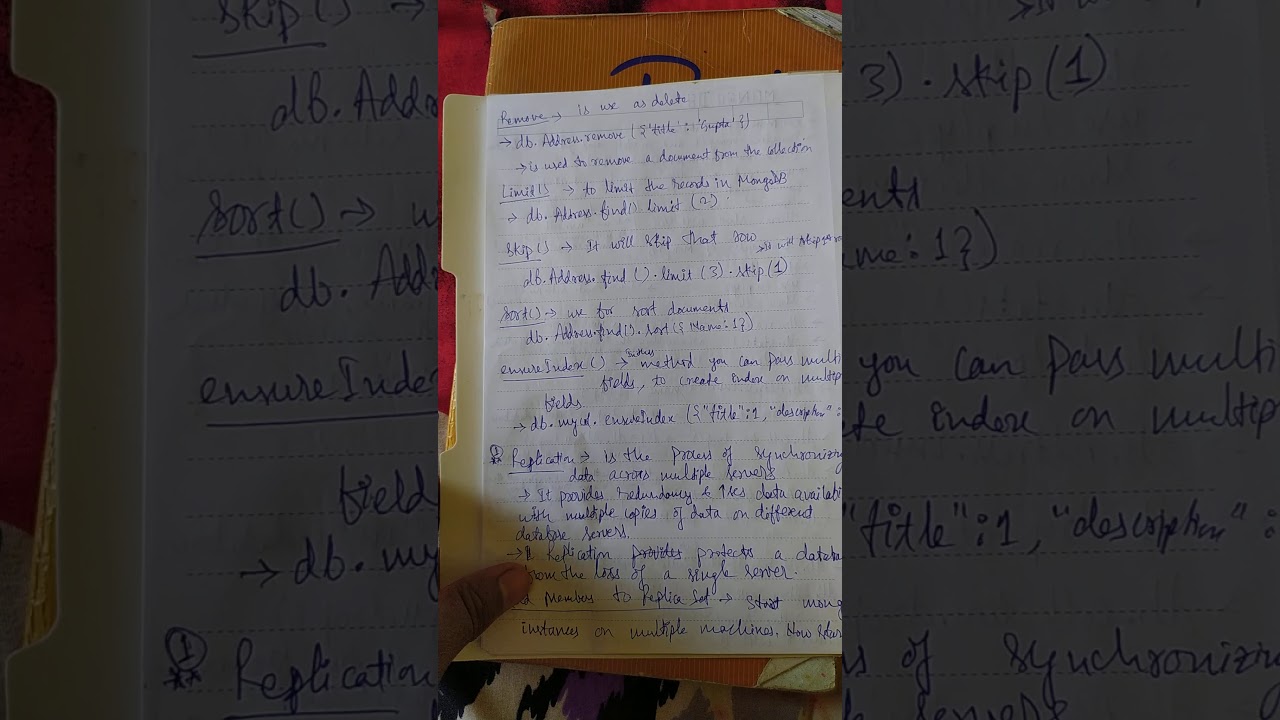 Remove → is use as delete
→ db.Address.remove ({'title': 'Gupta'})
→ is used to remove a document from the collection
Limit() → to limit the records in MongoDB
→ db.Address.find().limit (2)
Skip() → It will skip that row
→ It will skip
db.Address.find ().limit (3).skip(1)
Sort() → use for sort documents
db.Address.find().sort({Name:1})
ensureIndex () → method you can pass multi
fields, to create index on multip
fields
→ db.mycol.ensureIndex ({"title":1,"description":
① Replication → is the process of synchronizing
data across multiple servers
→ It provides redundancy & ↑ses data availabi
with multiple copies of data on different
database servers.
→ Replication provides protects a databa
from the loss of a single server.
d Members to Replica Set → Start mong
instances on multiple machines. Now star